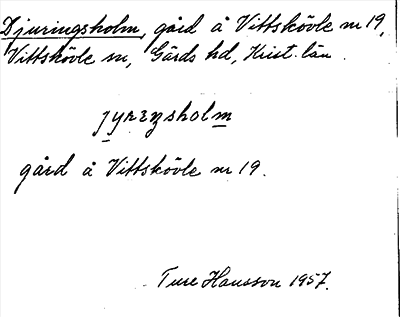 Djuringsholm, gård å Vittskövle nr 19,
Vittskövle sn, Gärds hd, Krist. län.
jyrɪŋsholm
gård å Vittskövle nr 19.
Ture Hansson 1957.